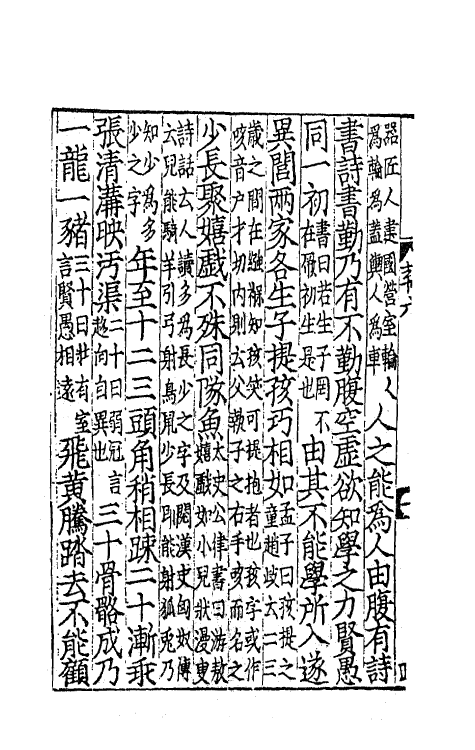 器匠人建國營室輪人為輪為蓋輿人為車人之能為人由腹有詩
書詩書勤乃有不勤腹空虛欲知學之力賢愚
同一初書曰若生子罔不在厥初生是也由其不能學所入遂
異閭兩家各生子提孩巧相如孟子曰孩提之童趙岐云二三
歲之間在襁褓知孩笑可提抱者也孩字或作咳音户才切内則云父執子之右手咳而名之
少長聚嬉戲不殊同隊魚太史公律書曰游敖嬉戲如小兒狀漫叟
詩話云人讀多為長少之字及閱漢史匈奴傳云兒能騎羊引弓射鳥鼠少長則能射狐兎乃
知少為多少之字年至十二三頭角稍相踈二十漸乖
張清溝映汚渠二十曰弱冠言趍向自異也三十骨骼成乃
一龍一豬三十曰壯有室言賢愚相逺飛黄騰踏去不能顧